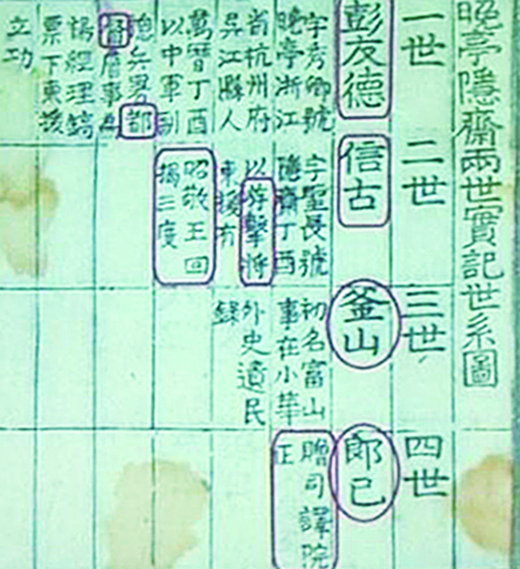 晚亭隱齋兩世實記世系圖
一世
彭友德
字秀卿號
晚亭浙江
省杭州府
吳江縣人
萬曆丁酉
以中軍副
總兵署都
督事
楊經理鎬
票下東援
立功
二世
信古
字聖長號
隱齋丁酉
以游擊將
東援有
昭敬王回
揭三度
三世
釜山
初名富山
事在小華
外史遺民
錄
四世
郎己
贈司譯院
正